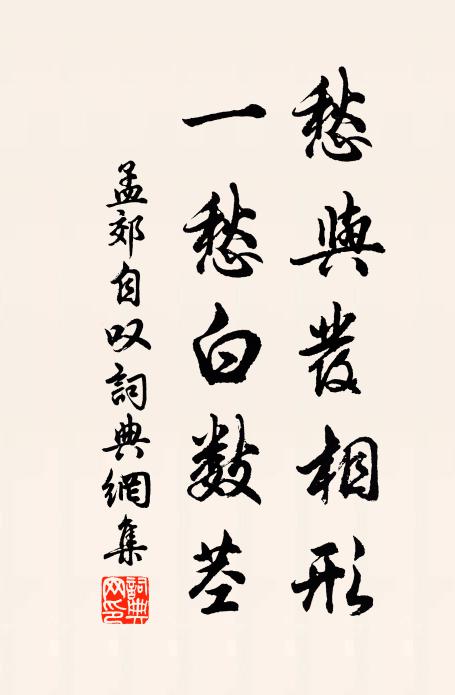 愁與發相形
一愁白數莖
孟郊自叹詞典網集
詞典網印